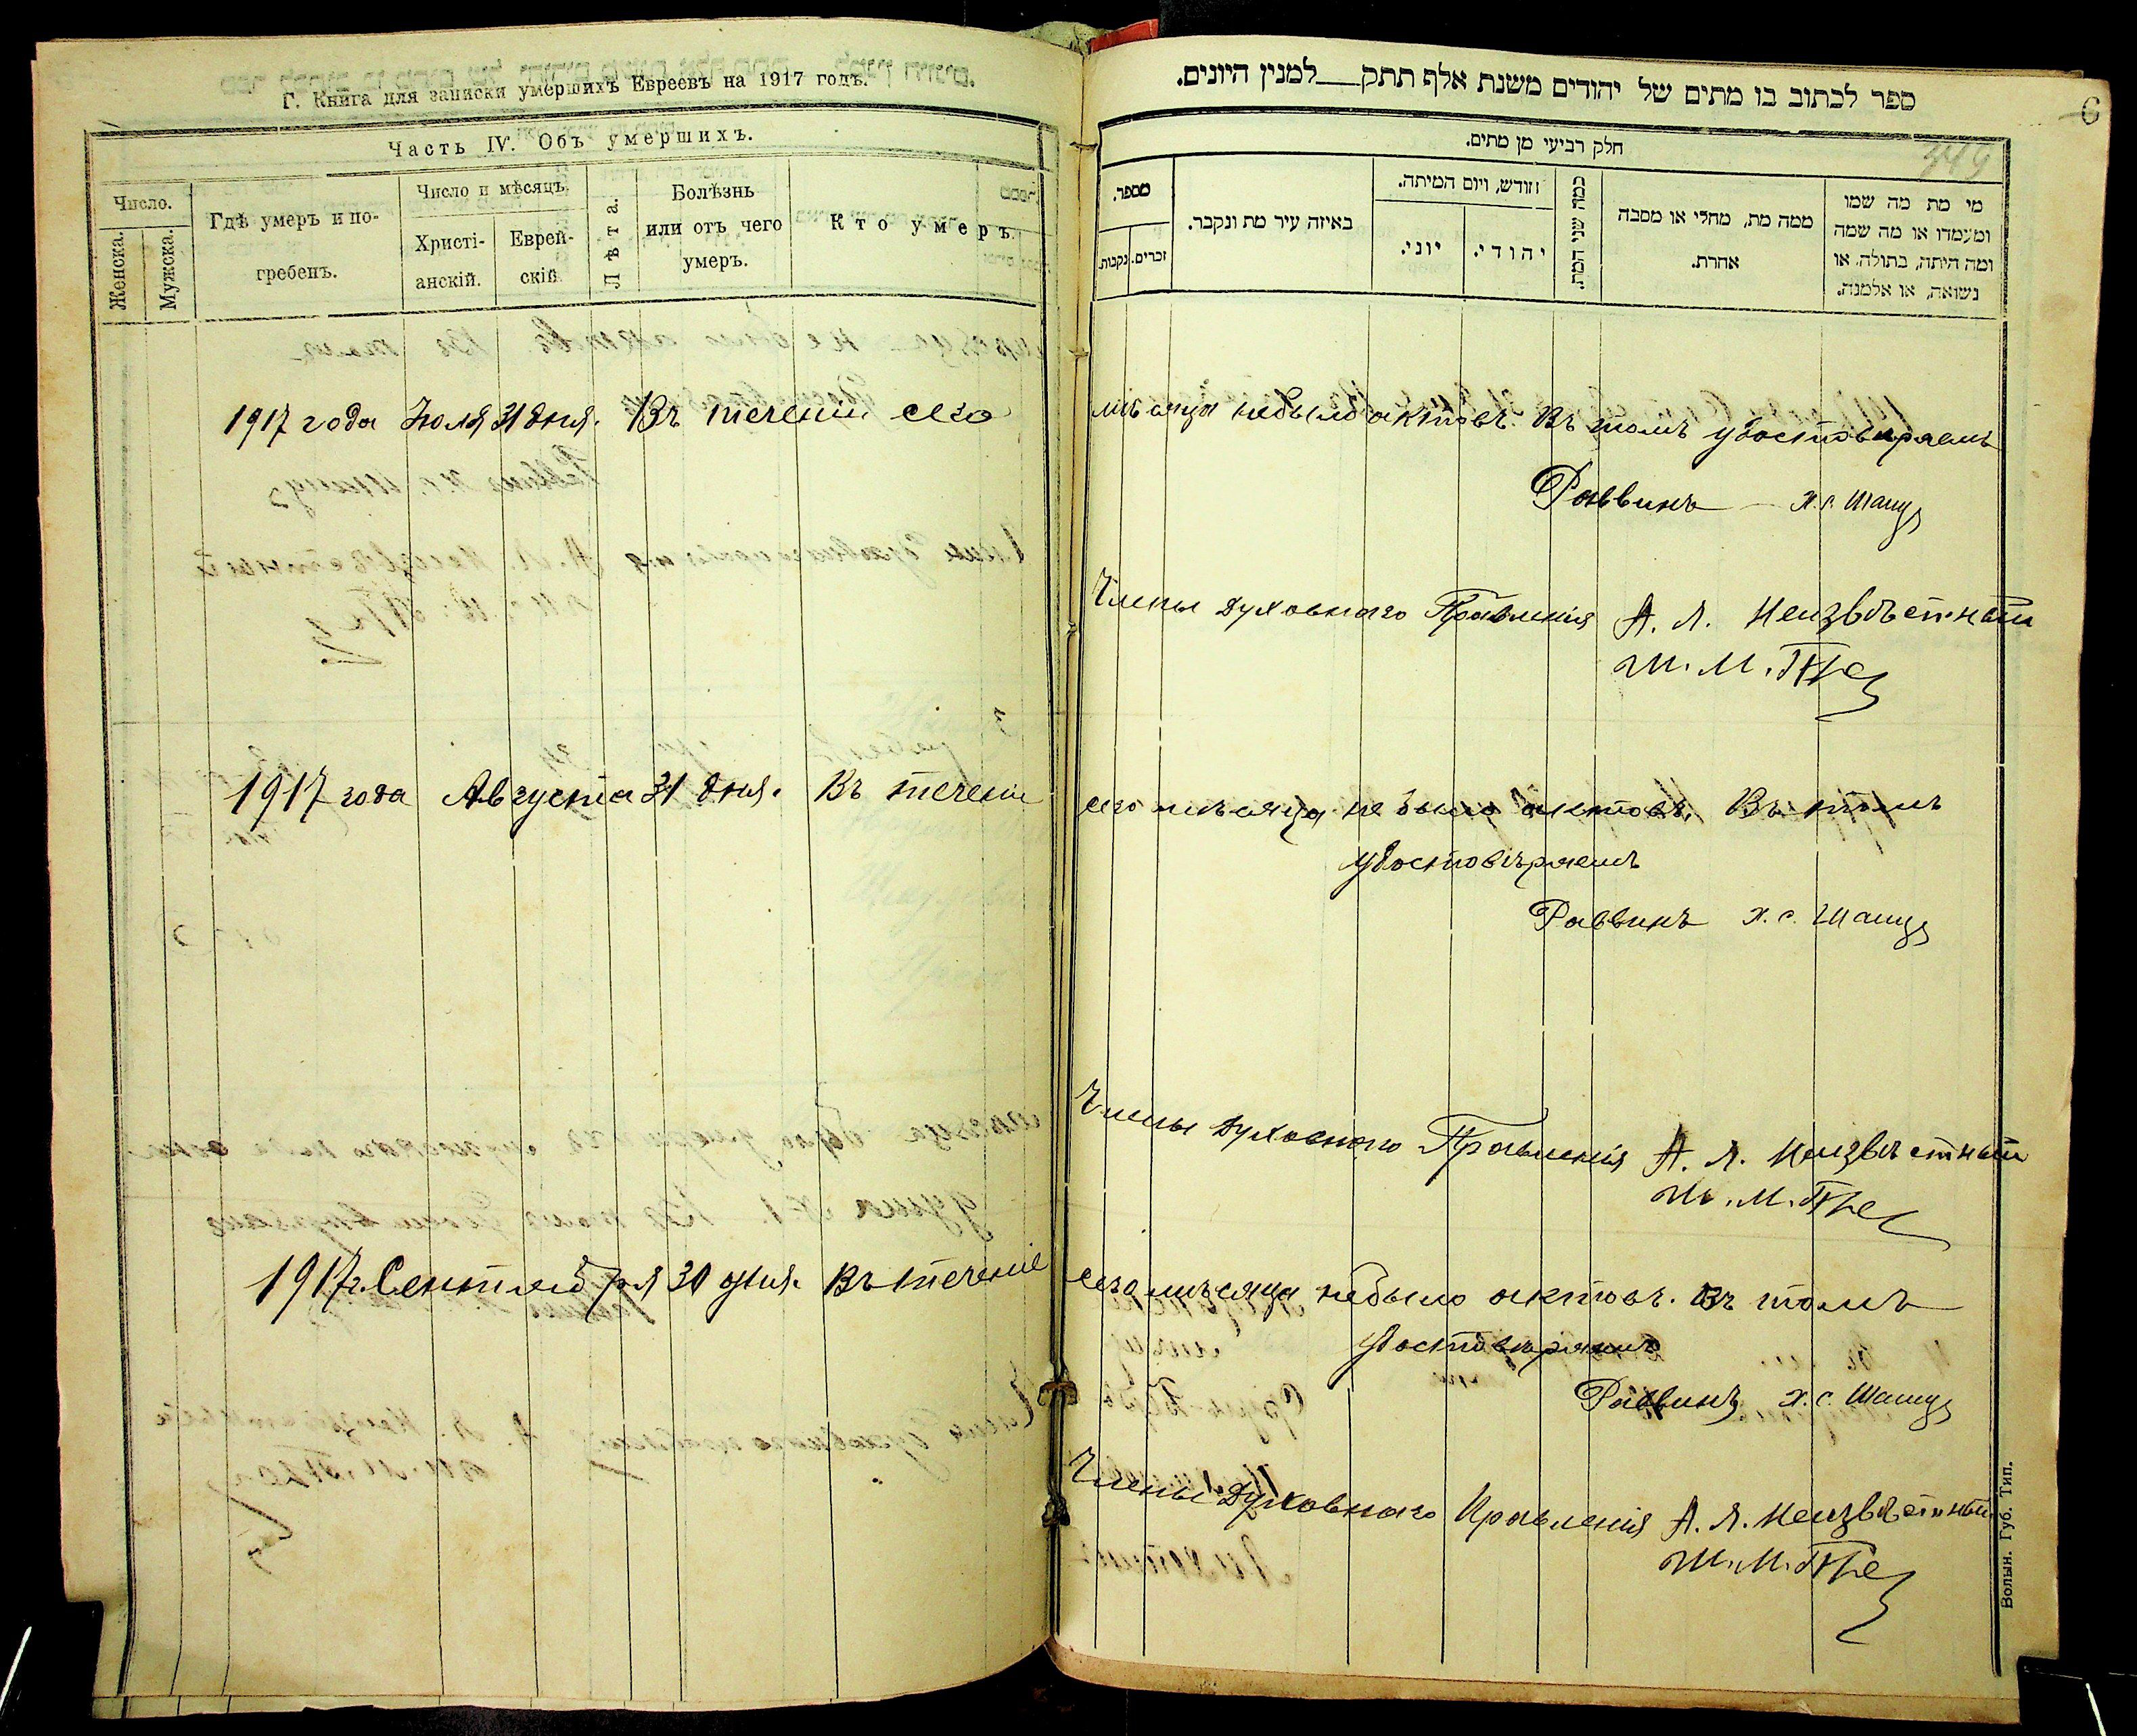 Г. Книга для записки умершихъ Евреевъ на 1917 годъ.
Часть IV. Объ умершихъ.
Число.
Женска.
Мужска.
Гдѣ умеръ и по-
гребенъ.
Число и мѣсяцъ
Христі-
анскій.
Еврей-
скій
Лѣта.
Болѣзнь
или отъ чего
умеръ.
Кто умеръ.
ספר לכתוב בו מתים של יהודים משנת אלף תתק למנין היונים.
6
449
חלק רביעי מן מתים.
מספר.
זכרים.
נקבות.
באיזה עיר מת ונקבר.
וזודש, ויום המיתה.
יוני.
יהודי.
כמה שני המת.
ממה מת, מחלי או מסבה
אחרת.
מי מת מה שמו
ומעמדו או מה שמה
ומה היתה, בתולה, או
נשואה, או אלמנה.
1917 года Июля 31 дня. Въ теченіи сего мѣсяца небыло актовъ. Въ томъ удостовѣряемъ
Раввинъ Х. С.
Члены Духовнаго Правленія А. Л. Неизвѣстный
Ш. М.
1917 года Августа 31 дня. Въ теченіе сего мѣсяца не было актовъ. Въ томъ
удостовѣряемъ
Раввинъ Х. С.
Члены Духовнаго Правленія А. Л. Неизвѣстный
Ш. М.
1917 г. Сентября 30 дня. Въ теченіе сего мѣсяца небыло актовъ. Въ томъ
удостовѣряемъ
Раввинъ Х. С.
Члены Духовнаго Правленія А. Л. Неизвѣстный
Ш. М.
Волын. Губ. Тип.